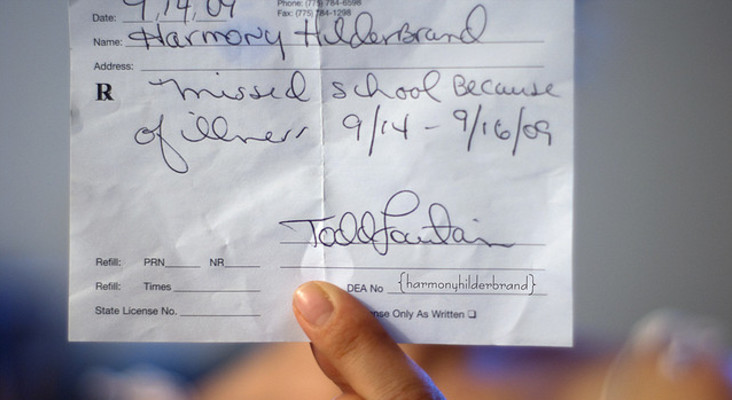 Phone: (775) 784-6598
Date: 9,14,09
Fax: (775) 784-1298
Name: Harmony Hilderbrand
Address:
R missed school Because
of illness 9/14 - 9/16/09
Todd Fountain
Refill: PRN NR
Refill: Times DEA No {harmonyhilderbrand}
State License No. nse Only As Written